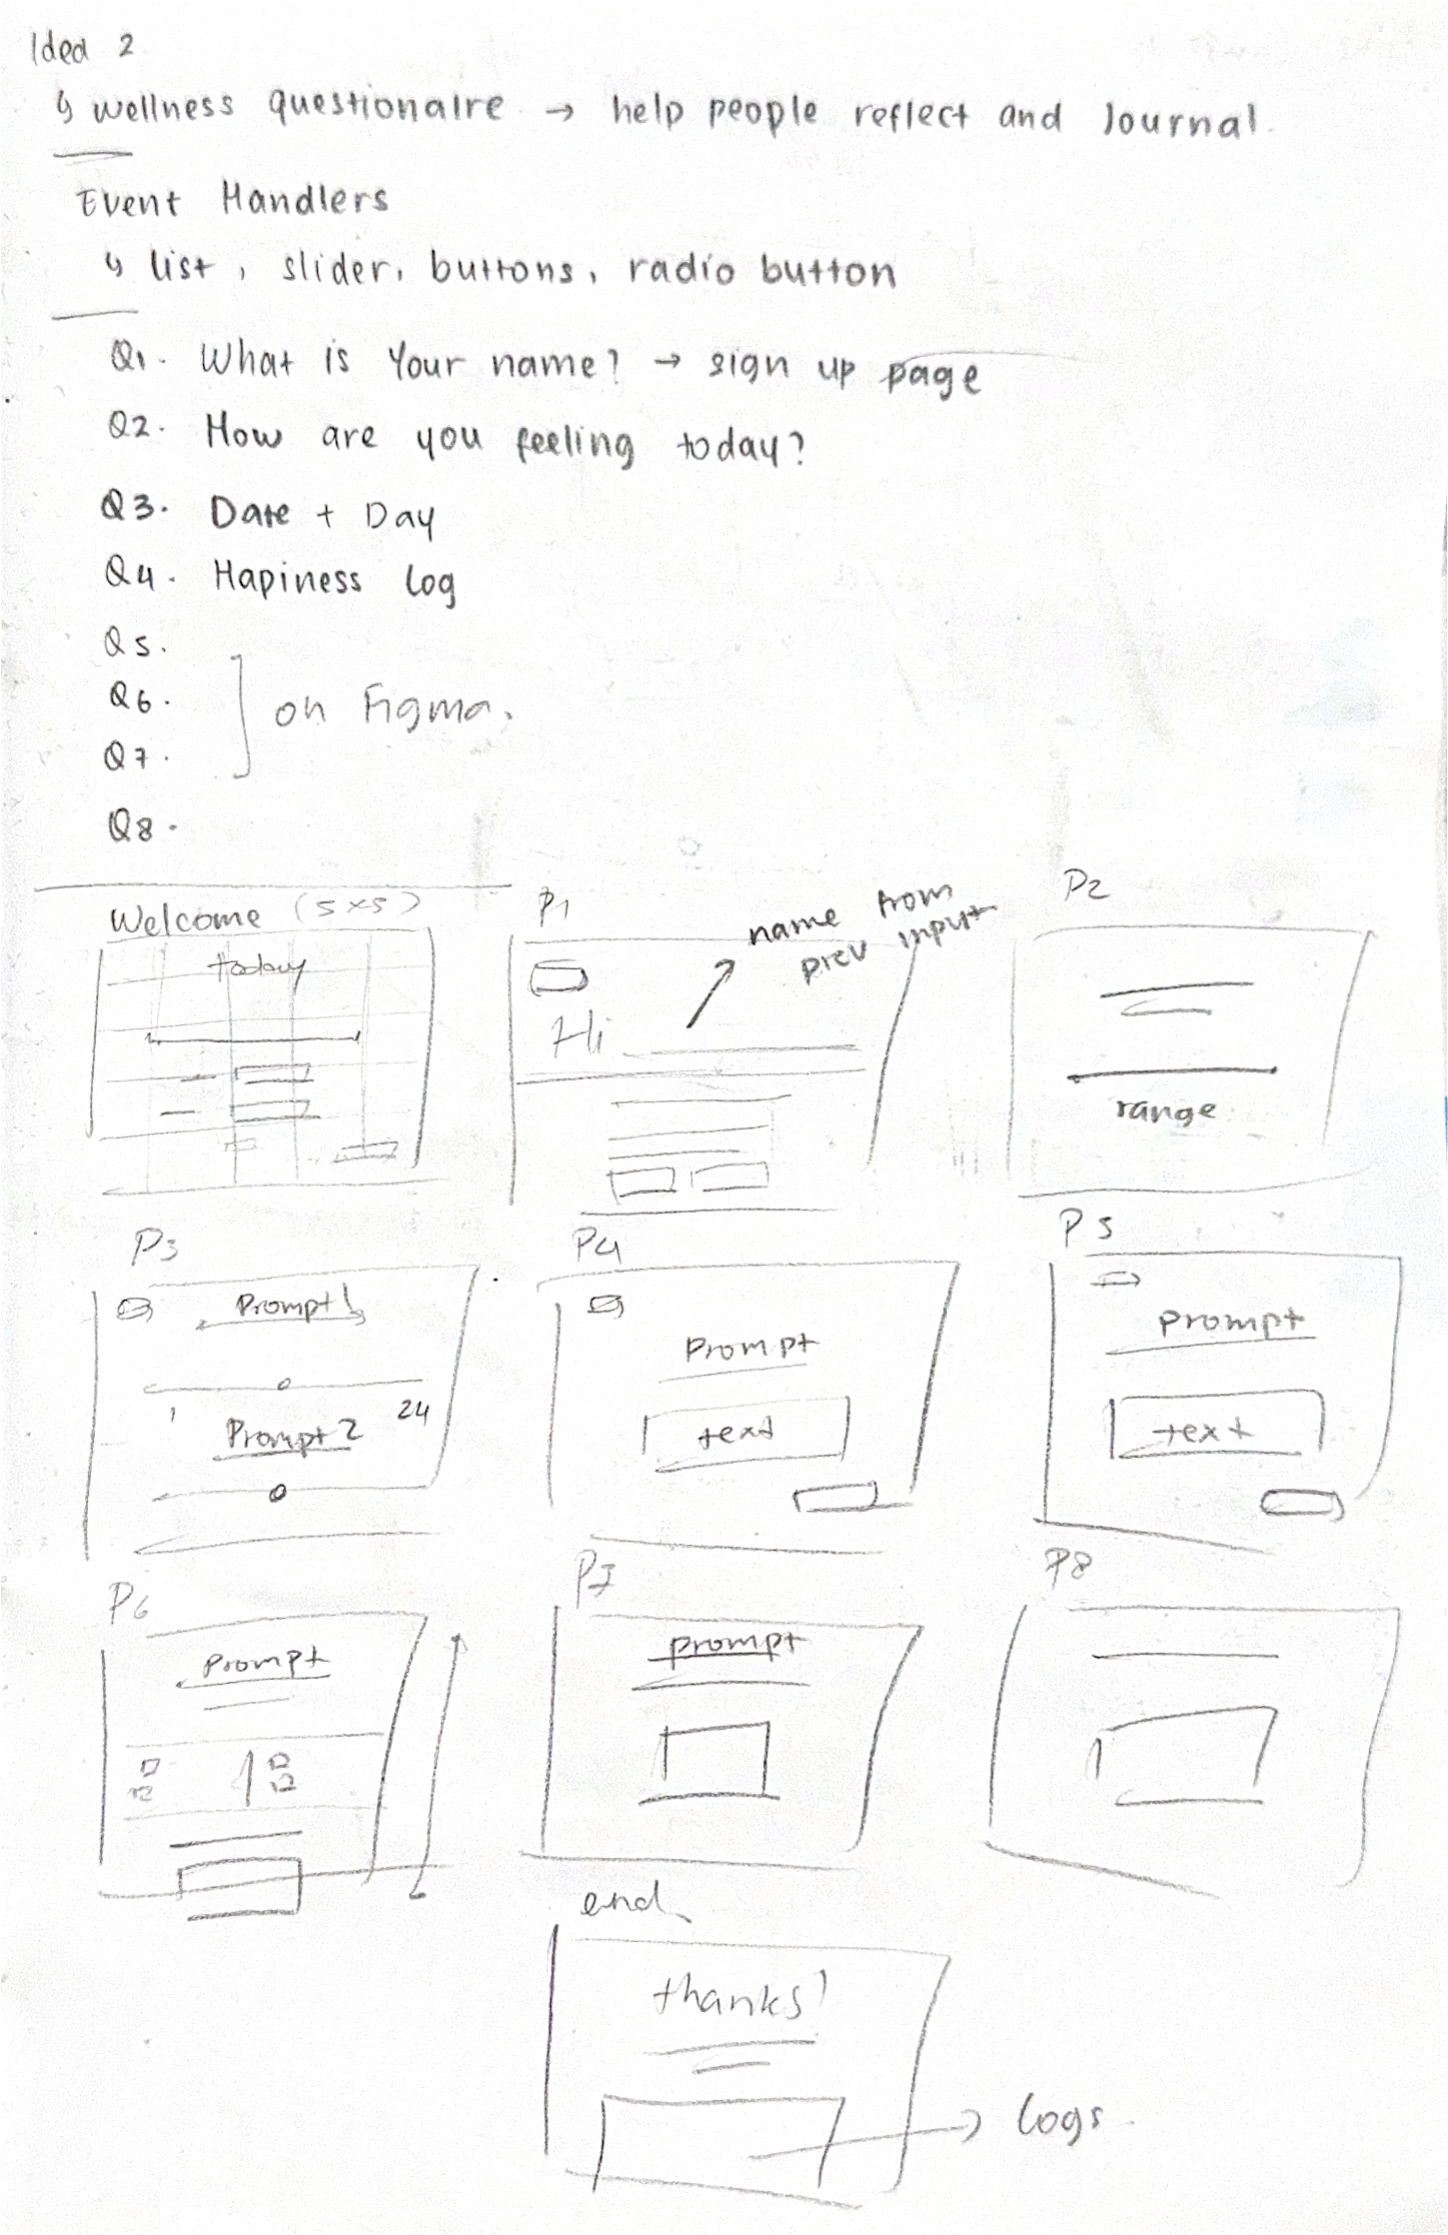 Idea 2
↳ wellness questionaire → help people reflect and Journal.
Event Handlers
↳ list, slider, buttons, radio button
Q1. What is Your name? → sign up page
Q2. How are you feeling today?
Q3. Date + Day
Q4. Hapiness log
Q5.
Q6.
Q7.
on Figma.
Q8.
Welcome (5x5)
today
P1
name from
prev input
Hi
P2
range
P3
Prompt 1
1 24
Prompt 2
P4
Prompt
text
P5
prompt
text
P6
Prompt
P7
prompt
P8
end
thanks!
→ logs.